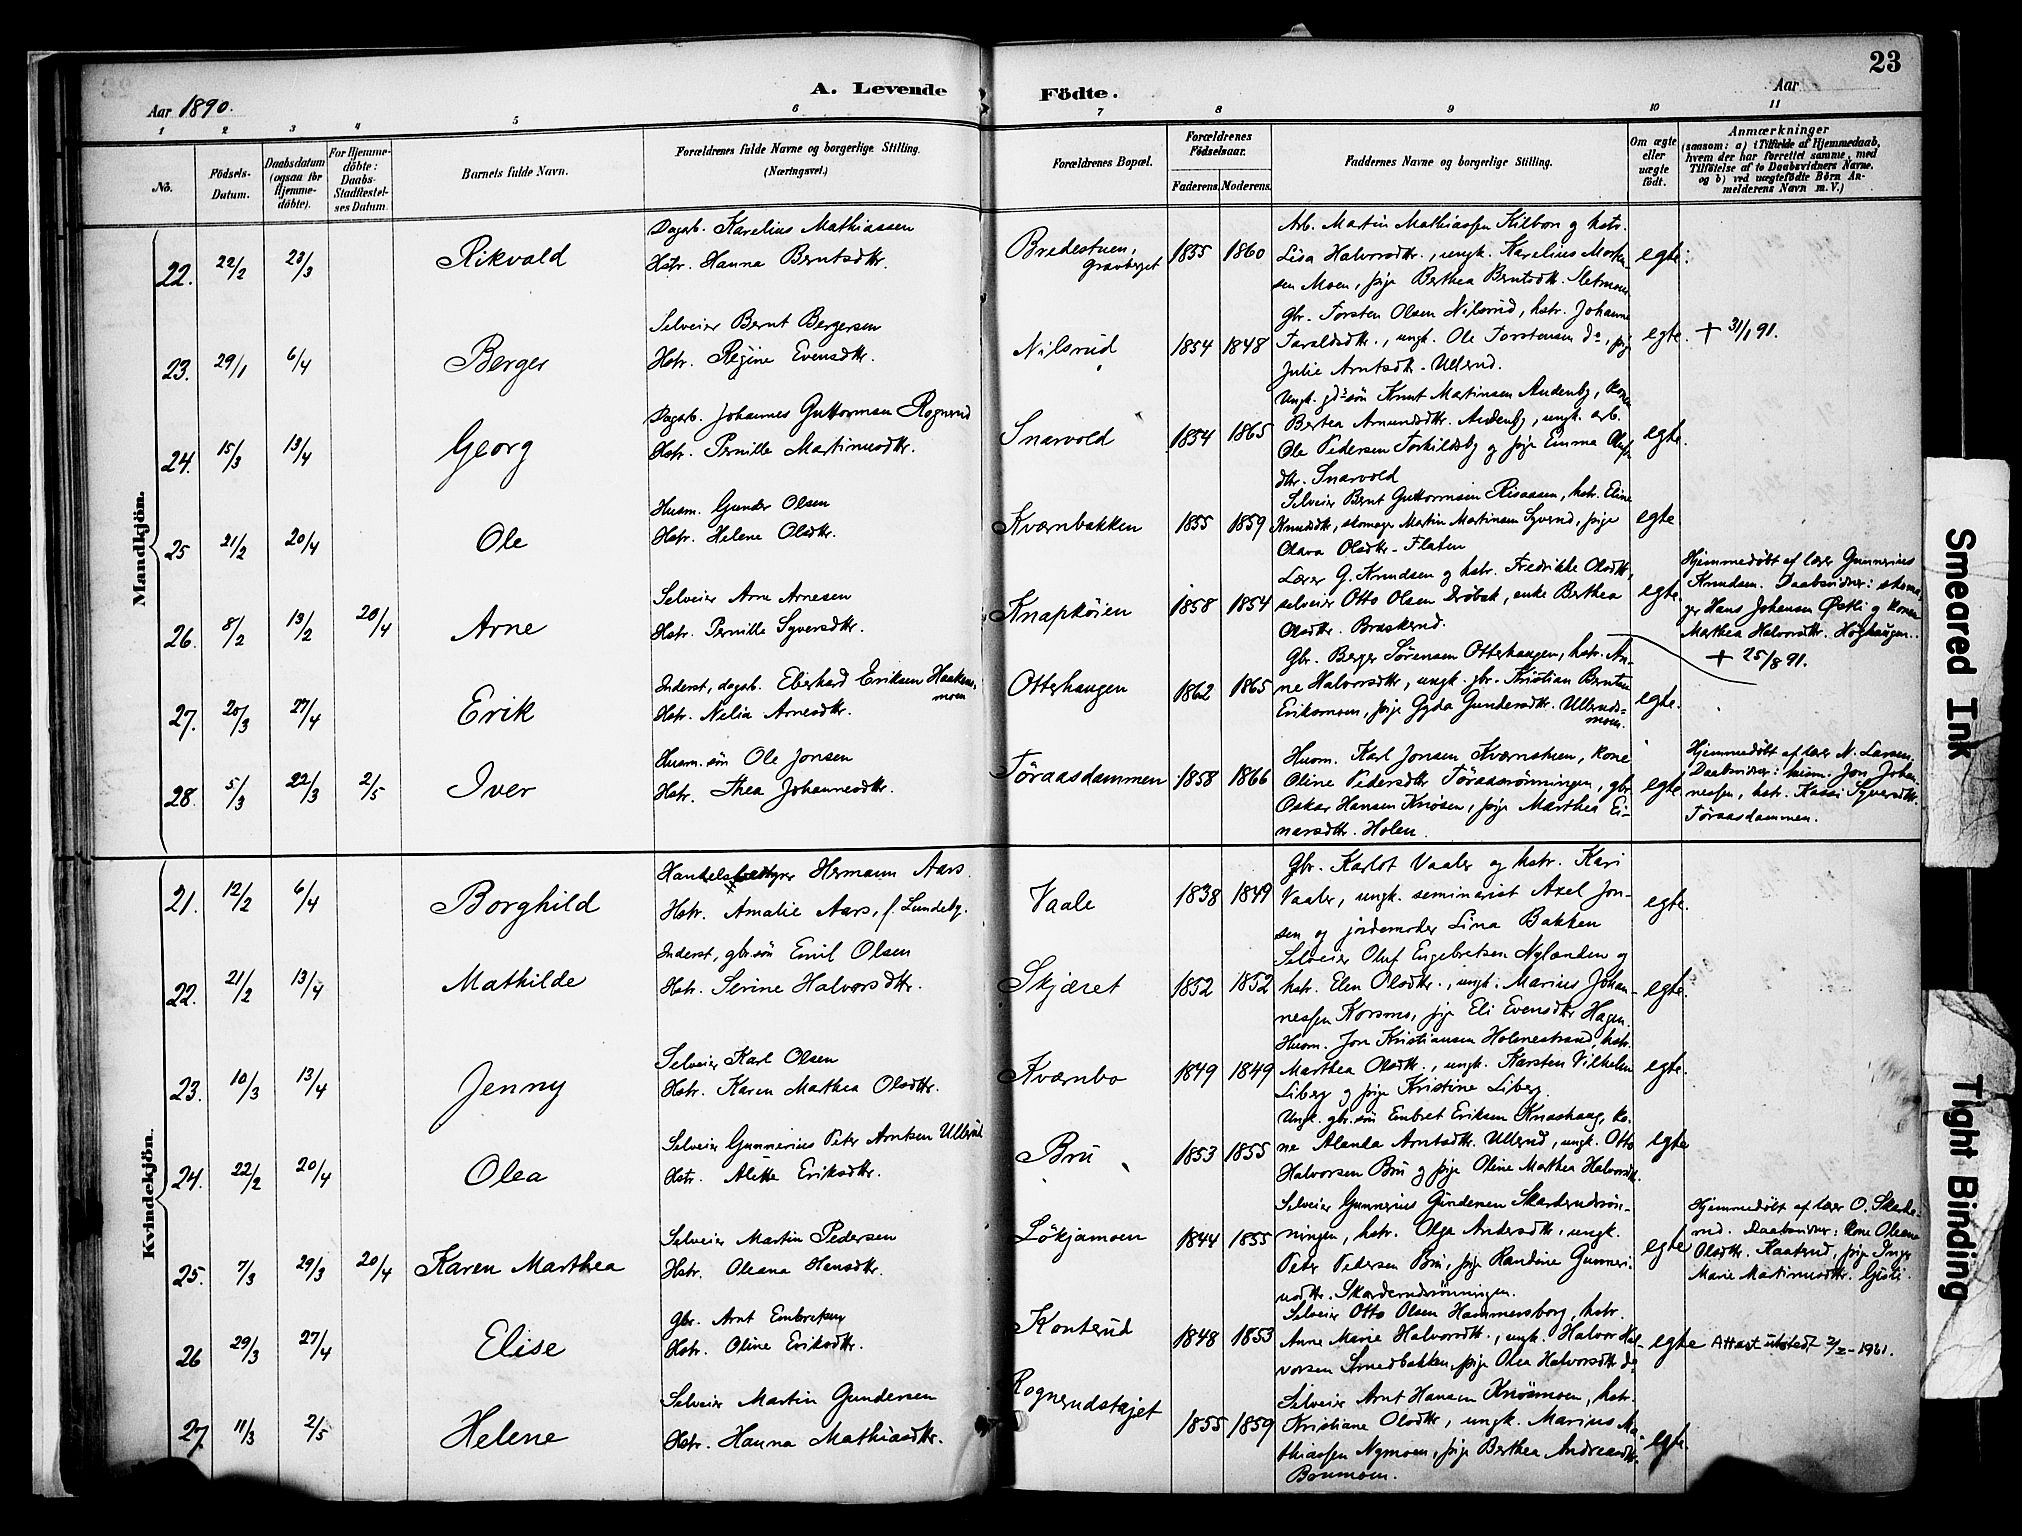 23
A. Levende Födte.
Aar 1890.
Aar
1 2 3 4 5 6 7 8 9 10 11
No.
Födsels-Datum.
Daabsdatum (ogsaa for Hjemme-döbte).
For Hjemme-döbte: Daabs-Stadfæstel-ses Datum.
Barnets fulde Navn.
Forældrenes fulde Navne og borgerlige Stilling.
(Næringsvei.)
Forældrenes Bopæl.
Forældrenes Födselsaar.
Faderens. Moderens.
Faddernes Navne og borgerlige Stilling.
Om ægte eller uægte födt.
Anmærkninger
(saasom: a) i Tilfælde af Hjemmedaab,
hvem der har forrettet samme, med
Tilföielse af to Daabsvidners Navne.
og b) ved uægtefödte Börn An-
melderens Navn m. V.)
Mandkjön.
22. 22/2 23/3 Rikvald
Dagarb. Karelius Mathiassen
Hstr. Hanna Berntsdtr.
Bredestuen, Gravberget 1855 1860
Arb. Martin Mathiassen Kilbon g hstr.
Lisa Halvorsdtr., ungk. Karelius Morten-
sen Moen, pige Berthea Berntsdtr. Sletmoen
egte.
23. 29/1 6/4 Berger
Selveier Bernt Bergersen
Hstr. Regine Evensdtr.
Nilsrud 1854 1848
Gbr. Torsten Olsen Nilsrud, hstr. Johanne
Taraldsdtr., ungk. Ole Torstensen do, pige
Julie Arntsdtr. Ullerud.
egte. + 31/1 91.
24. 15/3 13/4 Georg
Dagarb. Johannes Guttormsen Rognerud
Hstr. Pernille Martinusdtr.
Snarvold 1854 1865
Ungk. gdssøn Knut Martinsen Andenby, kone
Bertea Amundsdtr. Andenby, ungk. arb.
Ole Pedersen Torkildsby g pige Emma Olufs
dtr. Snarvold
egte.
25 21/2 20/4 Ole
Husm. Gunder Olsen
Hstr. Helene Olsdtr.
Kværnbakken 1855 1859
Selveier Bernt Guttormsen Risaasen, hstr. Eline
Knudsdtr, skomager Martin Martinsen Syverud, pige
Olava Olsdtr. Flaten
egte
26. 8/2 13/2 20/4 Arne
Selveier Arne Arnesen
Hstr. Pernille Syversdtr.
Knapkøien 1858 1854
Lærer G. Knudsen g hstr. Fredrikke Olsdtr,
selveier Otto Olsen Drøbak, enke Berthea
Olsdtr. Braskerud.
egte.
Hjemmedøbt af lærer Gunnerius
Knudsen. Daabsvidner: skoma-
ger Hans Johansen Østli g kone
Marthea Halvorsdtr. Høghaugen.
+ 25/8 91.
27. 20/3 27/4 Erik
Inderst, dagarb. Eberhard Eriksen Haakens-
moen
Hstr. Nelia Arnesdtr.
Otterhaugen 1862 1865
Gbr. Berger Sørensen Otterhaugen, hstr. An-
ne Halvorsdtr, ungk. gbr. Kristian Berntsen
Eriksmoen, pige Gyda Gundersdtr. Ulleruds-
moen.
egte.
28. 5/3 22/3 2/5 Iver
Husm.søn Ole Jonsen
Hstr. Thea Johannesdtr.
Tøraasdammen 1858 1866
Husm. Karl Jonsen Kværnstuen, kone
Oline Pedersdtr Tøraasrønningen, gbr.
Oskar Hansen Knøsen, pige Marthea Ei-
narsdtr. Holen.
egte.
Hjemmedøbt af lærer N. Larsen,
Daabsvidner: husm. Jon Johan-
nessen, hstr. Kassi Syversdtr.
Tøraasdammen.
Kvindekjön.
21. 12/2 6/4 Borghild
Handelsbestyrer Hermann Aars.
Hstr. Amalie Aars, f. Lundeby.
Vaale 1838 1849
Gbr. Karlot Vaaler og hstr. Kari
Vaaler, ungk. seminarist Axel Jon-
sen og jordemoder Lina Bakken
egte.
22. 21/2 13/4 Mathilde
Inderst, gbr.søn Emil Olsen
Hstr. Serine Halvorsdtr.
Skjæret 1852 1852
Selveier Oluf Engebretsen Nylanden og
hstr. Elen Olsdtr., ungk. Marius Johan-
nessen Korsmo, pige Eli Evensdtr Hagen.
egte.
23. 10/3 13/4 Jenny
Selveier Karl Olsen
Hstr. Karen Mathea Olsdtr.
Kværnbo 1849 1849
Husm. Jon Kristiansen Holmestrand, hstr.
Marthea Olsdtr., ungk. Karsten Vilhelm
Liberg g pige Kristine Liberg.
egte.
24. 22/2 20/4 Olea
Selveier Gunnerius Peter Arntsen Ullerud
Hstr. Alette Eriksdtr.
Bru 1853 1855
Ungk. gbr.søn Embret Eriksen Knashaug, ko-
ne Alanda Arntsdtr. Ullerud, ungk. Otto
Halvorsen Bru g pige Oline Marthea Halvorsdtr.
egte
25. 7/3 29/3 20/4 Karen Marthea
Selveier Martin Pedersen
Hstr. Oleana Hansdtr.
Løkjamoen 1844 1855
Selveier Gunnerius Gundersen Skarderudrøn-
ningen, hstr. Olga Andersdtr, ungk.
Peter Pedersen Bru, pige Randine Gunneri-
usdtr. Skarderudrønningen.
egte
Hjemmedøbt af lærer O. Skarde-
rud. Daabsvidner: kone Oleana
Olsdtr. Kaatrud, pige Inger
Marie Martinusdtr. Gjsti.
26 29/3 27/4 Elise
Gbr. Arnt Embretsen
Hstr. Oline Eriksdtr.
Konterud 1848 1853
Selveier Otto Olsen Hammersborg, hstr.
Anne Marie Halvorsdtr., ungk. Halvor Hal-
vorsen Smedbakken, pige Olea Halvorsdtr do
egte Attest utstedt 7/2-1961.
27. 11/3 2/5 Helene
Selveier Martin Gundersen
Hstr. Hanna Mathiasdtr.
Rognerudstøjet 1855 1859
Selveier Arnt Hansen Knøsmoen, hstr.
Kristiane Olsdtr, ungk. Marius Ma-
thiassen Nymoen, pige Berthea Andreasdtr.
Bonmoen.
egte.
Smeared Ink
Tight Binding